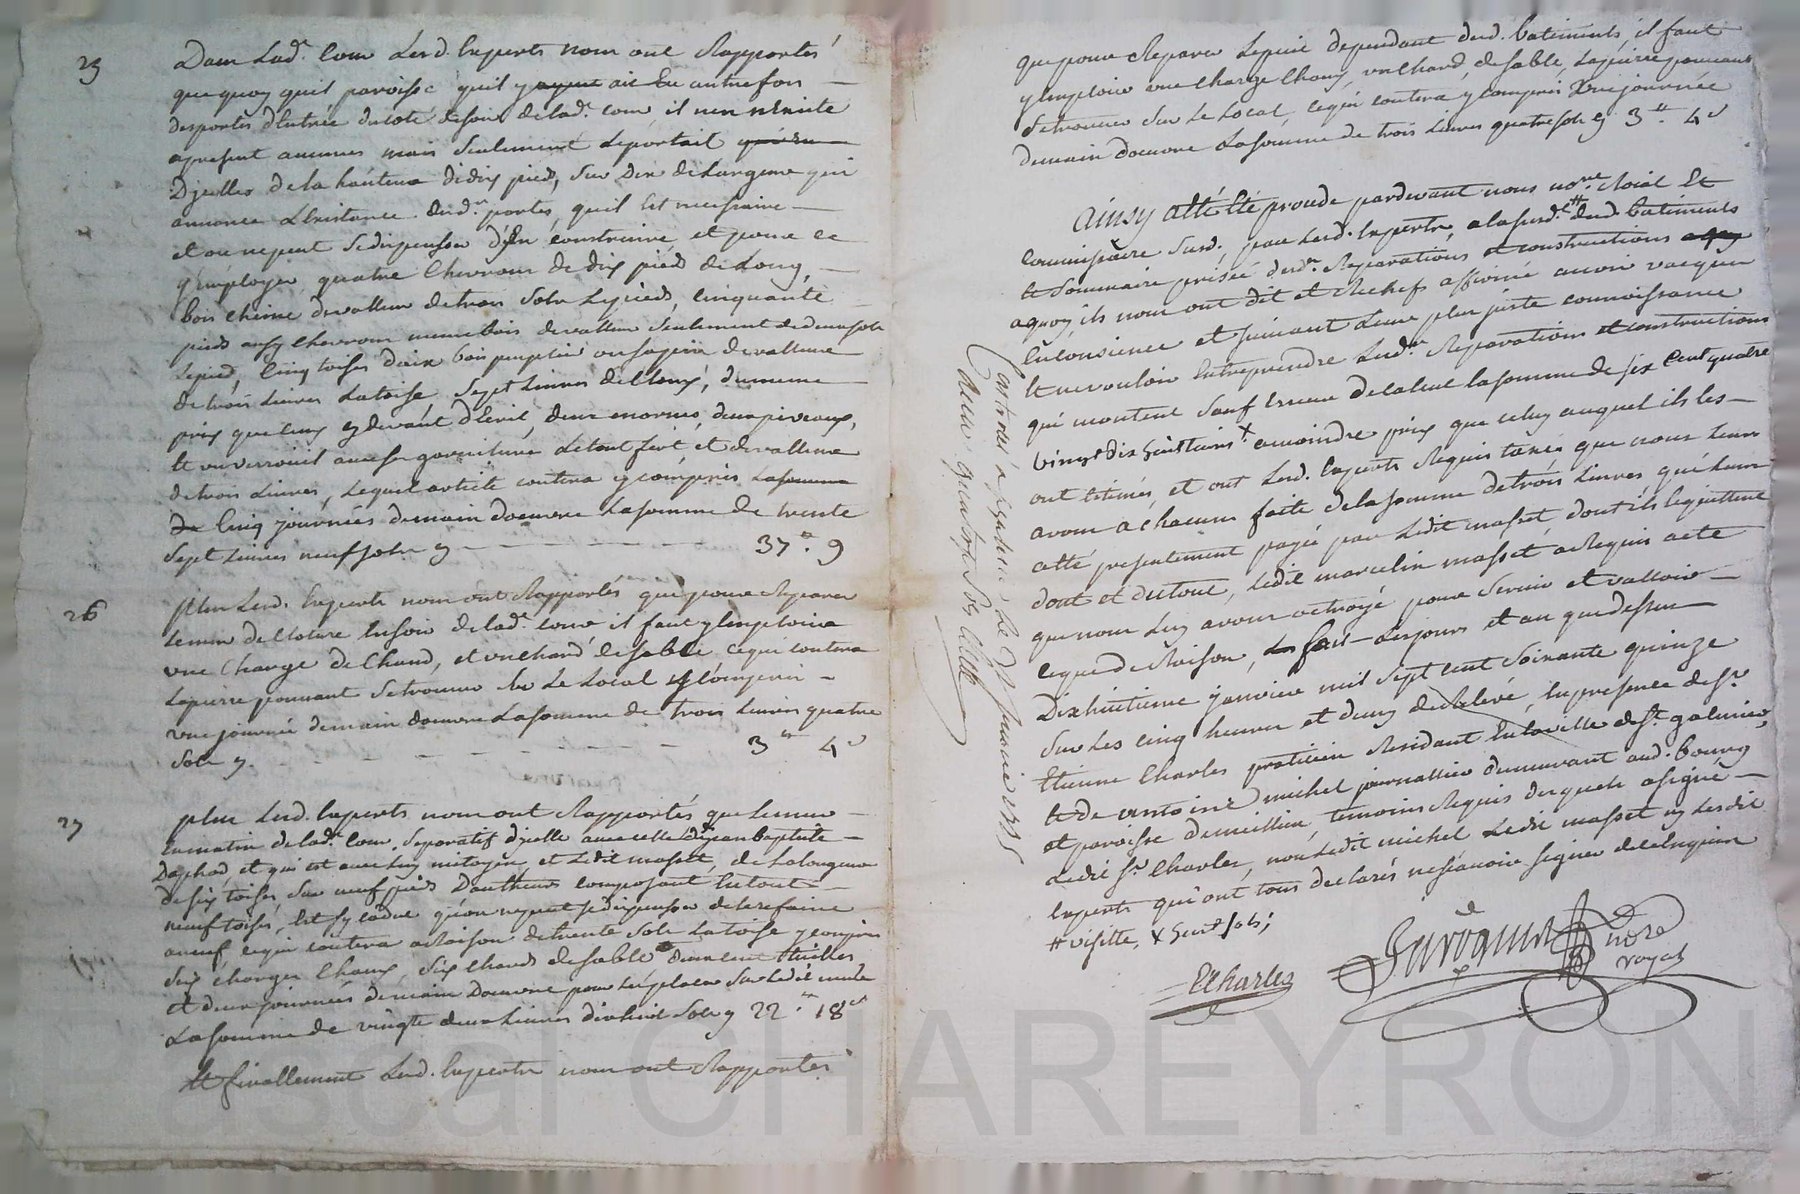 25
Dans lad.e cour lesd. experts nous ont rapportés
que quoy quil paroisse quil y ayent aie eu autrefois
desportes d'entrée du coté de soir de lad.e cour, il nen n'existe
apresent aucunes mais seulement le portail
D'jcelles de la hauteur de dix pied, sur dix de largeur qui
annonce l'existance desd.es portes, quil est necessaire
et ou ne peut se dispenser d'en construire, et pour ce
y employer quatre chevrons de dix pied de long,
bois chesne de valleur de trois sols le pieds, cinquante
pieds aussy chevrons meme bois de valleur seulement de deux sols
le pied, cinq toises d'aix bois peuplier ou sapin de valleur
de trois livres la toise, sept livres de cloux, du meme
prix que ceux cy devant d'écrit, deux enormes, deux piveaux,
et un verrouil avec sa garniture le tout fert et de valleur
de trois livres, lequel article coutera y compris la somme
de cinq journées de main doeuvre la somme de trente
sept livres neuf sols cy 37.lt 9
26
Plus lesd. experts nous ont rapportés que pour reparer
le mur de cloture en soir de lad.e cour il faut y employer
une charge de chaud, et un chard de sable ce qui coutera
la pierre pouvant se trouver sur le local y compris
une journée de main doeuvre la somme de trois livres quatre
sols cy. 3lt 4s
27
plus lesd. experts nous ont rapportés que le mur
en matin de lad.e cour, separatif d'jcelle avec celle de jean baptiste
Daphad, et qui est avec luy mitoyen, et ledit masset, de la longueur
de six toises, sur neuf pieds d'autheur composant en tout
neuf toises, est sy caduc qu'on ne peut se dispenser de le refaire
aneuf, ce qui coutera a raison de trente sols la toise y compris
six charges chaux, six chards de sable
et deux journées de main doeuvre pour les placer sur ledit mur
la somme de vingte deux livres dix huit sols cy 22.lt 18s
Et finallement lesd. experts nous ont rapportés
que pour reparer le puit dependant desd. batiments il faut
y employer une charge chaux, un chard, de sable, la pierre pouvant
se trouver sur le local, ce qui coutera y compris une journée
de main doeuvre la somme de trois livres quatre sols cy 3.lt 4s
Ainsy atté été procede pardevant nous no.re roial et
commissaire susd. par lesd. experts, a la susd.e # desd. batiments
et sommaire prisée desd.es reparations et constructions
aquoy, ils nous ont dit et rechef affirmé avoir vacquer
en consience et suivant leur plus juste connoissance
et ne vouloir entreprendre lesd.es reparations et constructions
qui montent sauf erreur de calcul la somme de six cent quatre
vingt dix huit livres x a moindre prix que celuy auquel ils les
ont estimés, et ont lesd. experts requis taxes que nous leur
avons a chacuns faite de la somme de trois livres qui leur
atté presentement payée par ledit masset dont ils le quittent
dont et du tout, ledit marcelin masset a requis acte
que nous luy avons octroyé pour servir et valloir
ce que de raison, fait les jours et an que dessus
Dix huitieme janvier mil sept cent soixante quinze
sur les cinq heures et demy de relevé, en presence de sr
Etienne Charles praticien residant en la ville de st galmier,
et de antoine michel journallier demeurant aud. bourg
et paroisse de meillieu temoins requis desquels a signé
ledit sr Charles, non ledit michel ledit masset ny lesdit
experts qui ont tous declarés ne scavoir signer de ce enquis
# visitte, x huit sols;
Controllé a le janvier 1775
Reçu quatorze sols
ECharles
no.re
royal